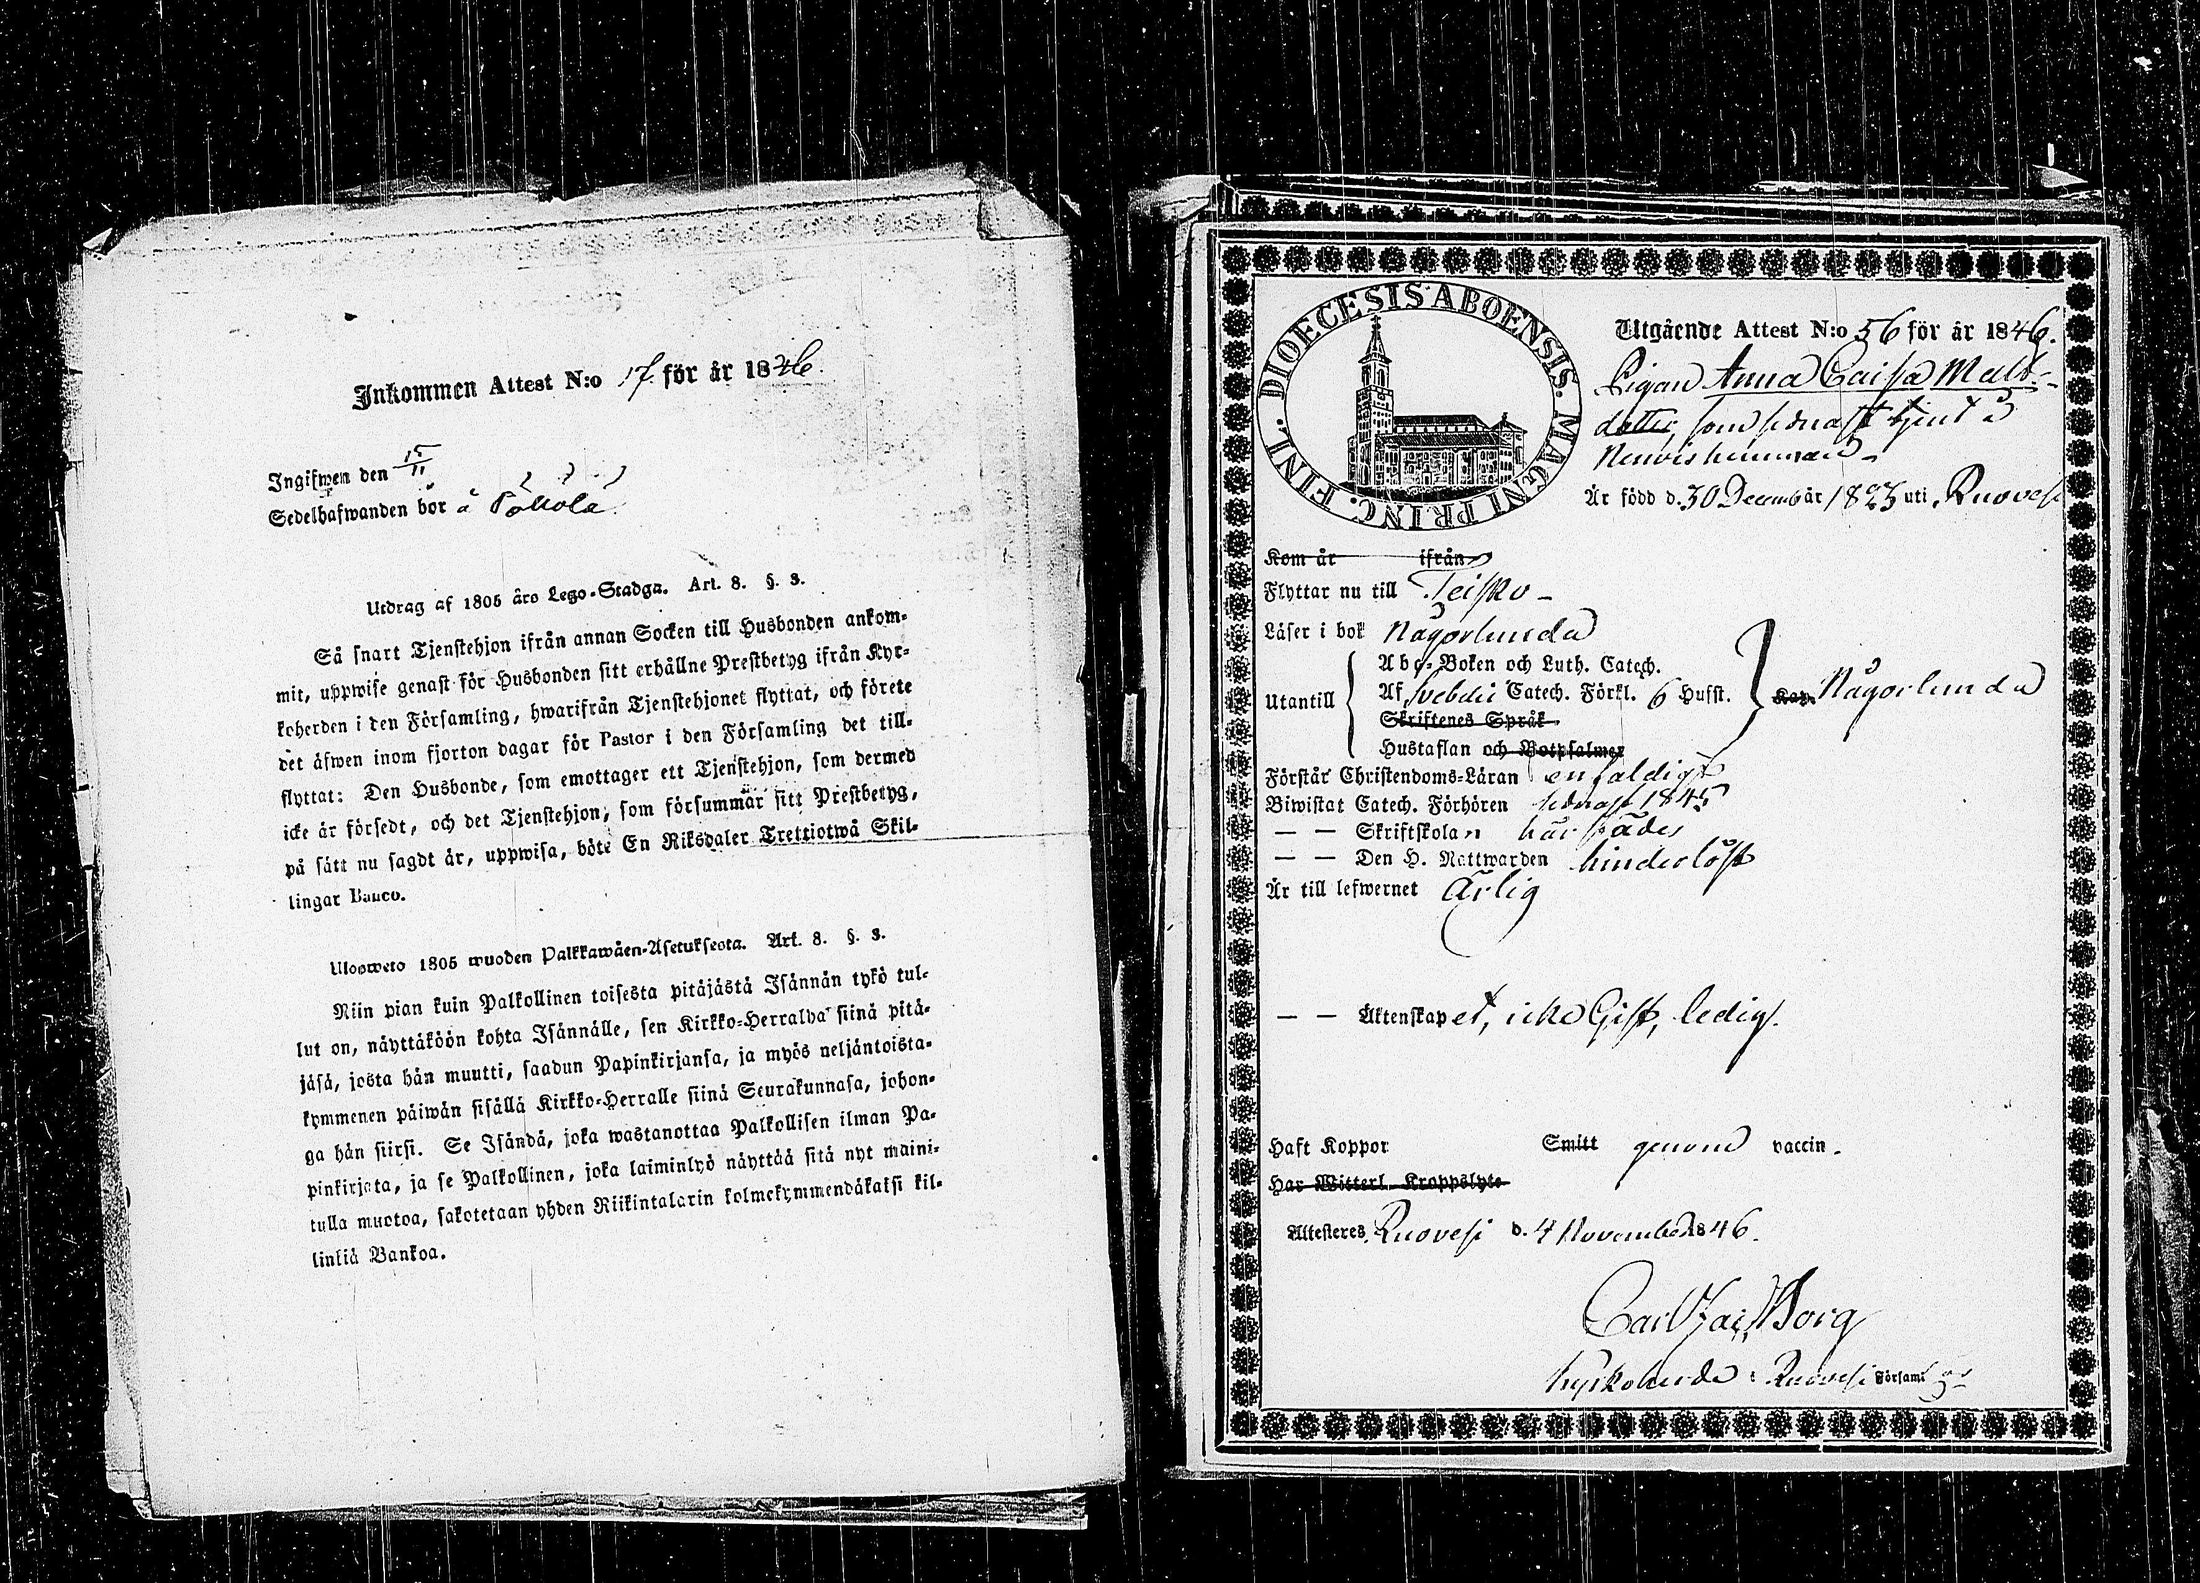 Inkommen Attest N:o 17. för år 1846.
Ingifwen den 15/11
Sedelhafwanden bor å Pållola
Utdrag af 1805 års Lego-Stadga. Art. 8. §. 3.
Så snart Tjenstehjon ifrån annan Socken till Husbonden ankom-
mit, uppwise genast för Husbonden sitt erhållne Prestbetyg ifrån Kyr-
koherden i den Församling, hwarifrån Tjenstehjonet flyttat, och förete
det äfwen inom fjorton dagar för Pastor i den Församling det till-
flyttat: Den Husbonde, som emottager ett Tjenstehjon, som dermed
icke är försedt, och det Tjenstehjon, som försummar sitt Prestbetyg,
på sätt nu sagdt är, uppwisa, böte En Riksdaler Trettiotwå Skil-
lingar Banco.
Ulosweto 1805 wuoden Palkkawäen-Asetuksesta. Art. 8. §. 3.
Niin pian kuin Palkollinen toisesta pitäjästä Isännän tykö tul-
lut on, näyttäköön kohta Isännälle, sen Kirkko-Herralda siinä pitä-
jäsä, josta hän muutti, saadun Papinkirjansa, ja myös neljäntoista-
kymmenen päiwän sisällä Kirkko-Herralle siinä Seurakunnasa, johon-
ga hän siirsi. Se Isändä, joka wastanottaa Palkollisen ilman Pa-
pinkirjata, ja se Palkollinen, joka laiminlyö näyttää sitä nyt maini-
tulla muotoa, sakotetaan yhden Riikintalarin kolmekymmendäkaksi kil-
linkiä Bankoa.
DIOECESIS ABOENSIS. MAGNI PRINC. FINL.
Utgående Attest N:o 56 för år 1846.
Pigan Anna Caisa Matts-
dotter, som sednast tjent å
hemman
Är född d. 30 Decemb år 1823 uti Ruovesi
Kom år ifrån
Flyttar nu till Teisko
Läser i bok Någorlunda
Abc-Boken och Luth. Catech.
Utantill Af Svebelii Catech. Förkl. 6 Hufst. Kan Någorlunda
Skriftenes Språk
Hustaflan och Botpsalmer
Förstår Christendoms-Läran enfaldigt
Biwistat Catech. Förhören sednast 1845
— — Skriftskolan här städes
— — Den H. Nattwarden hinderlöst
Är till lefwernet Ärlig
— — Äktenskapet, icke Gift, ledig.
Haft Koppor Smitt genom vaccin.
Har Witterl. Kroppslyte
Attesteres Ruovesi d. 4 November 1846.
Carl Borg
Kyrkoherde i Ruovesi Församl